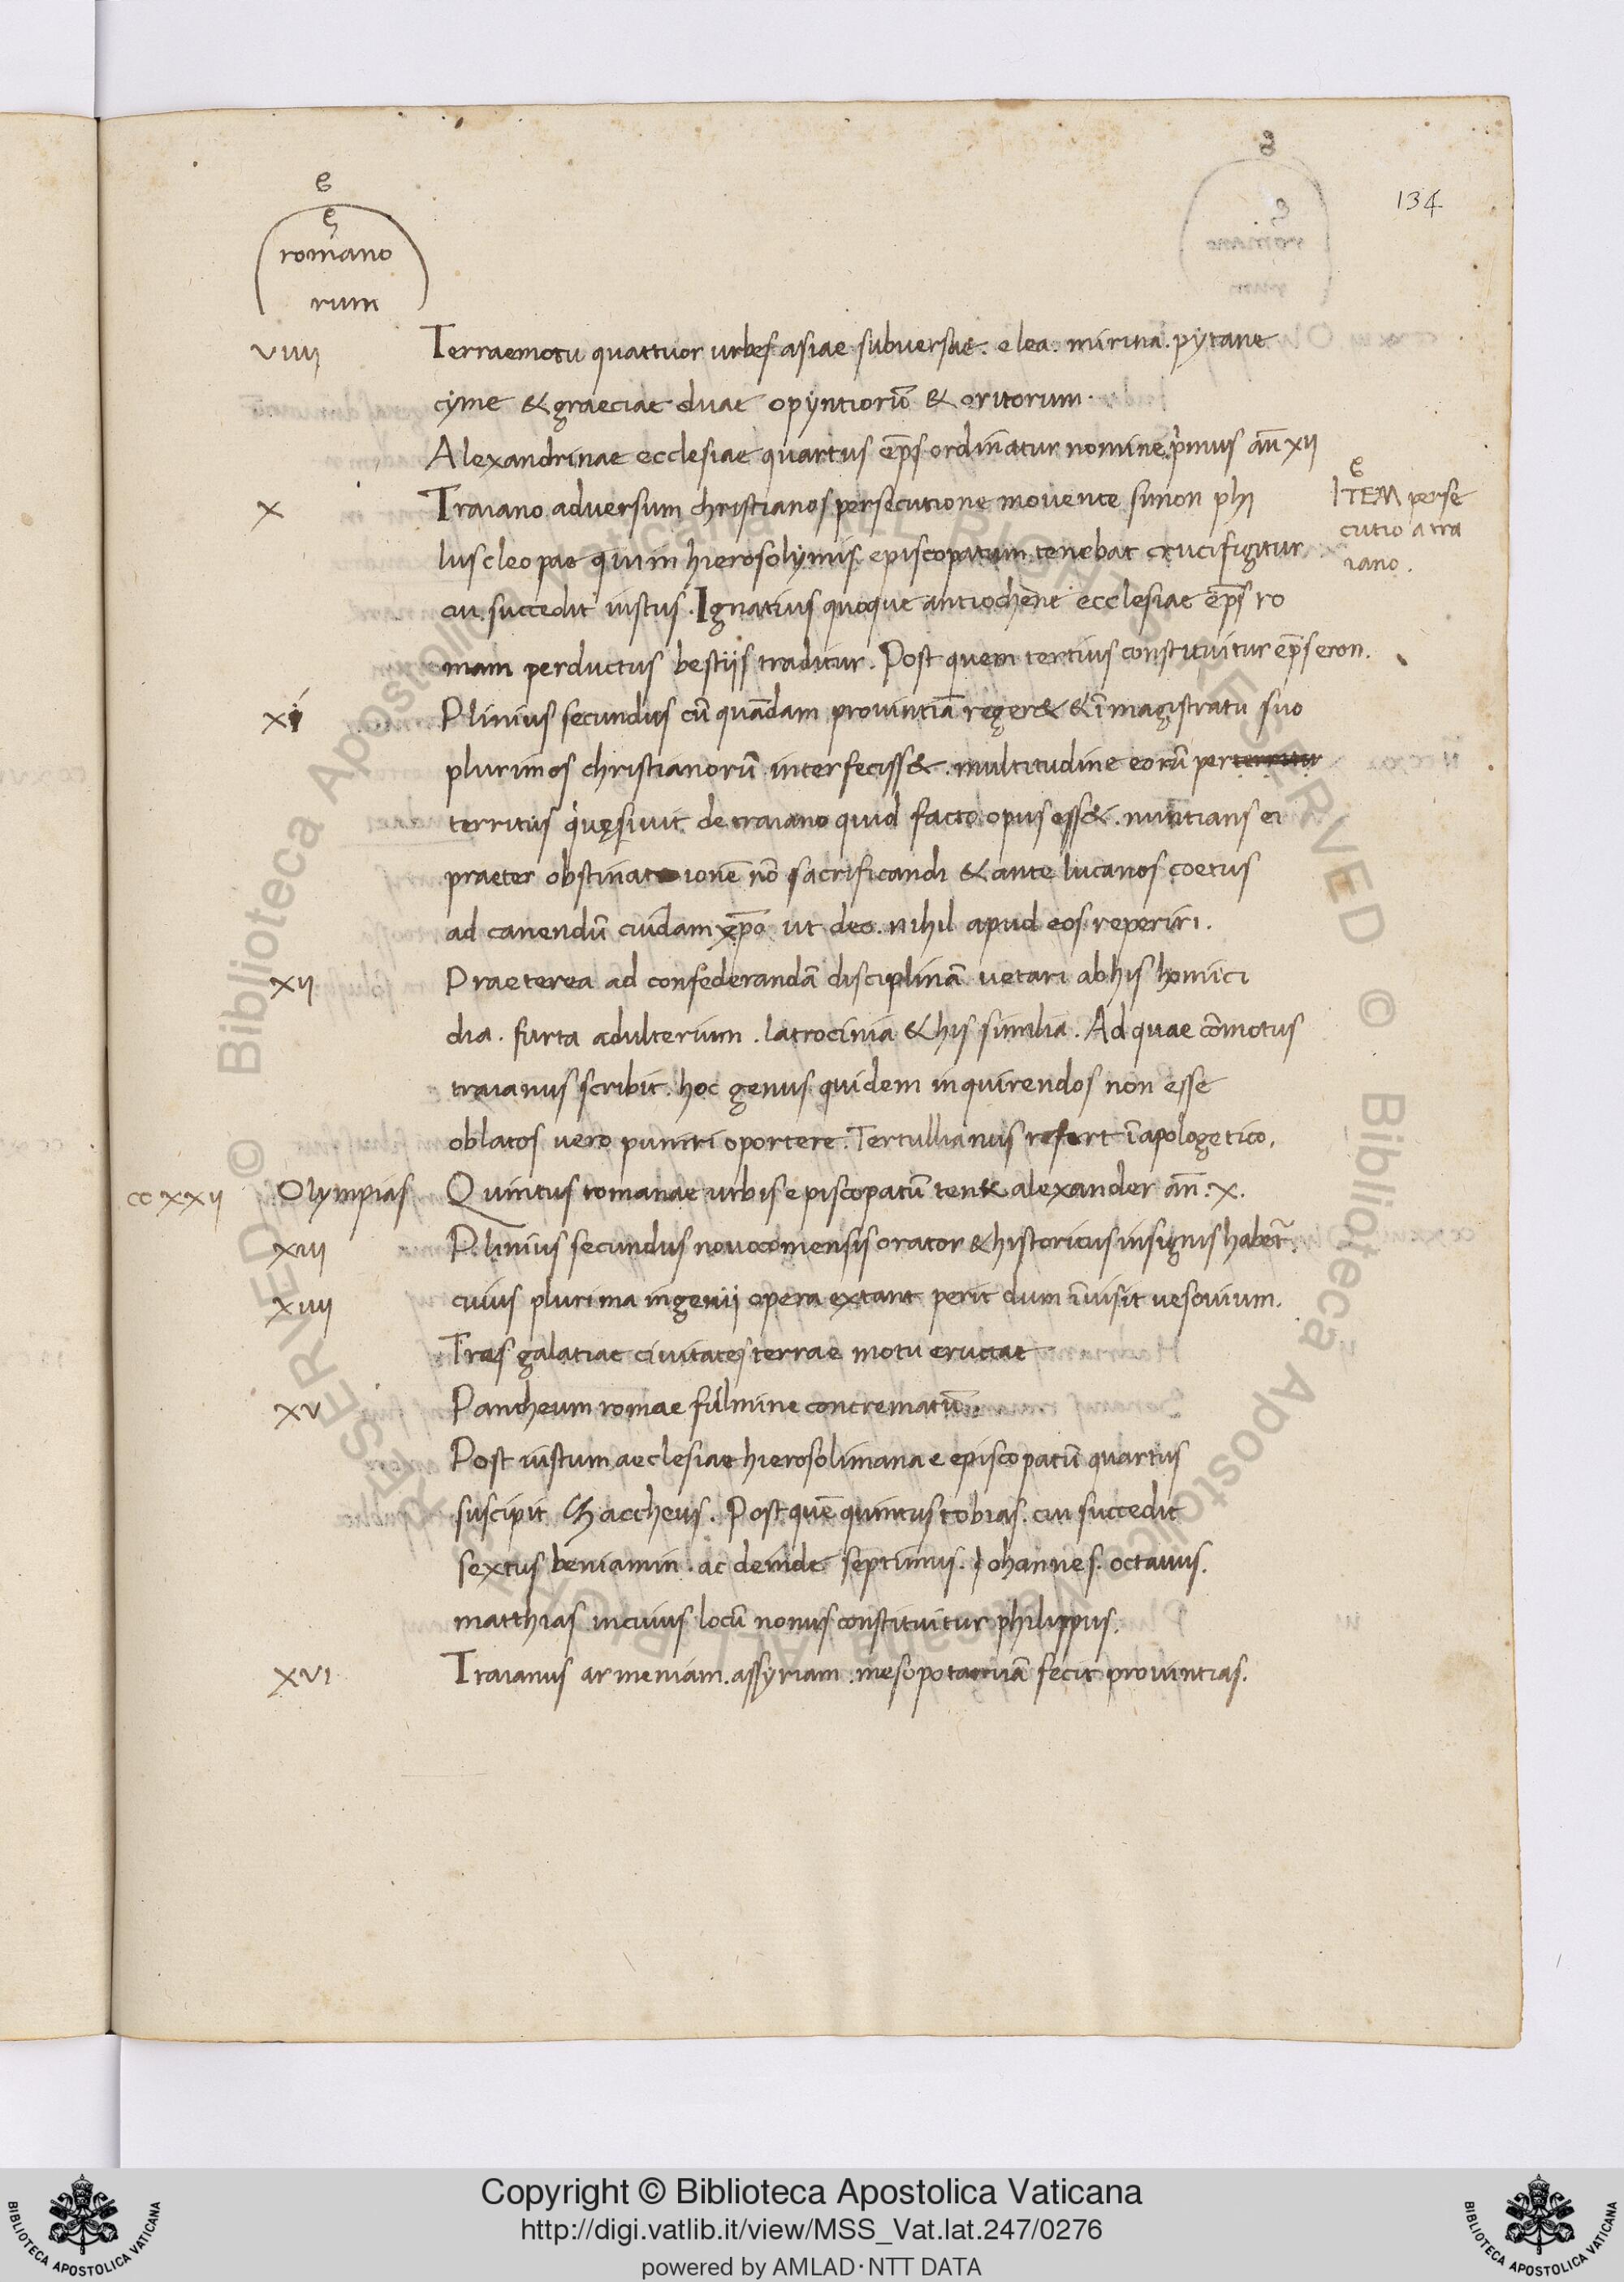 134
romano
rum
VIIII Terraemotu quattuor urbes asiae subversae. elea. mirina. pytane
cyme & graeciae duae opyntiorū & oritorum.
Alexandrinae ecclesiae quartus eps̄ ordinatur nomine primus añ XII
X Traiano adversum christianos persecutione movente simon phi
lus cleopae qui in hierosolymis episcopatum tenebat crucifigitur
cui succedit iustus. Ignatius quoque antiochene ecclesiae eps̄ ro
mam perductus bestiis traditur. Post quem tertius constituitur eps̄ eron.
ITEM perse
cutio a tra
iano.
XI Plinius secundus cū quādam provintiā reger& & ī magistratu suo
plurimos christianorū interfeciss&. multitudine eorū per
territus quęsivit de traiano quid facto opus ess&. nuntians ei
praeter obstinationē nō sacrificandi & ante lucanos coetus
ad canendū cuidam xp̄o ut deo. nihil apud eos reperiri.
XII Praeterea ad confederandā disciplinā vetari ab his homici
dia. furta adulterium. latrocinia & his similia. Ad quae cōmotus
traianus scribit. hoc genus quidem inquirendos non esse
oblatos vero puniri oportere. Tertullianus refert ī apologetico.
CCXXII Olympias Quintus romanae urbis episcopatū ten& alexander añ. X.
XIII Plinius secundus novocomensis orator & historicus insignis habet̄.
XIIII cuius plurima ingenii opera extant perit dum īvisit vesovium.
Tres galatiae civitates terrae motu erutae
XV Pantheum romae fulmine crematū.
Post iustum aeclesiae hierosolimanae episcopatū quartus
suscipit Zaccheus. Post quē quintus tobias. cui succedit
sextus beniamin. ac deinde septimus. Iohannes. octavus.
matthias in cuius locū nonus constituitur philippus.
XVI Traianus armeniam. assyriam. mesopotamiā fecit provintias.
Copyright © Biblioteca Apostolica Vaticana
http://digi.vatlib.it/view/MSS_Vat.lat.247/0276
powered by AMLAD·NTT DATA
BIBLIOTECA APOSTOLICA VATICANA
BIBLIOTECA APOSTOLICA VATICANA